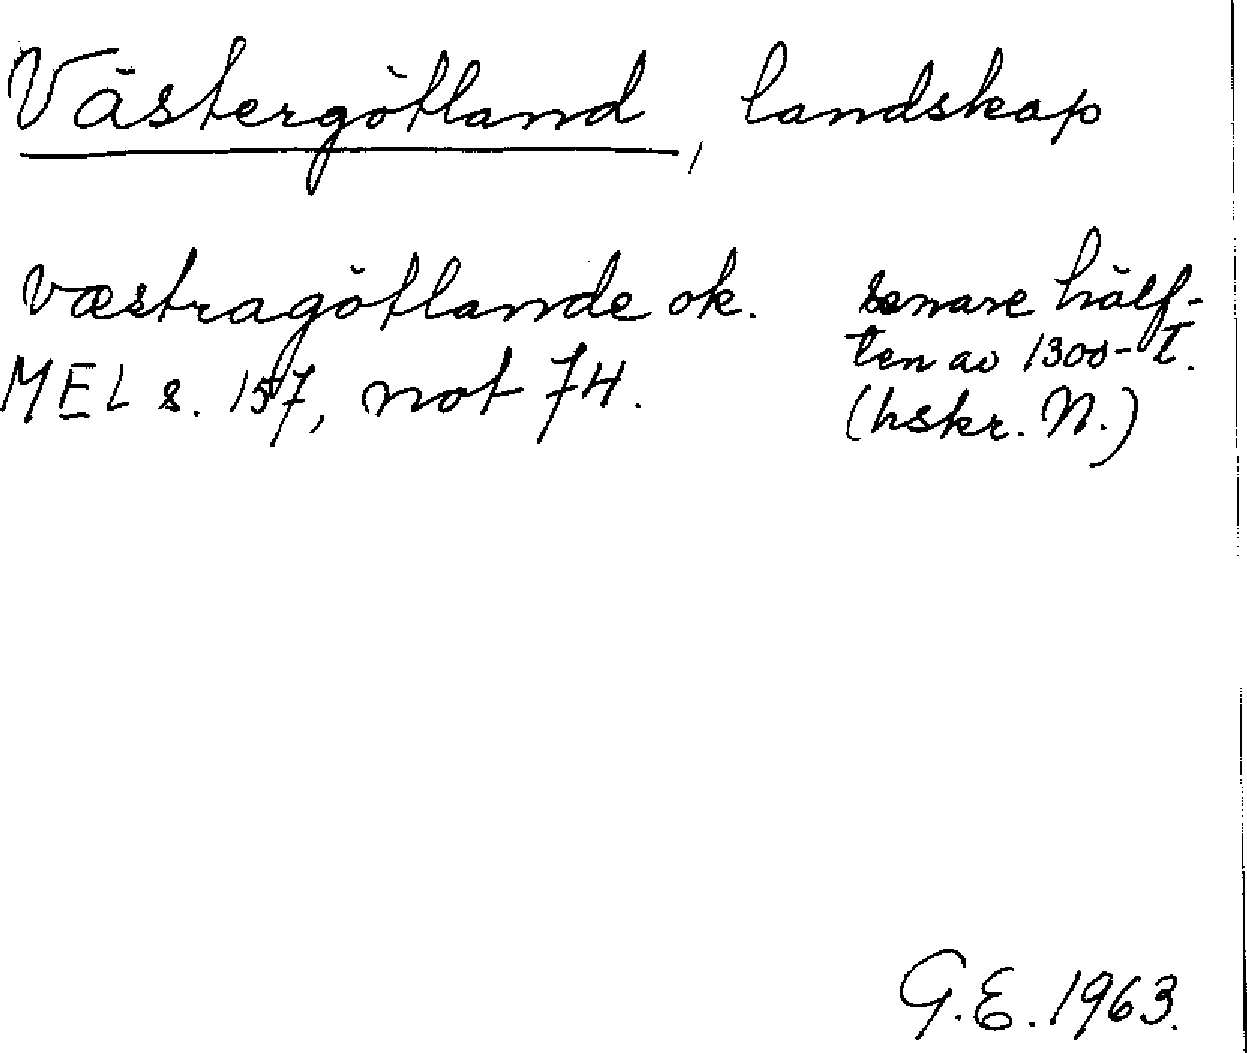 Västergötland, landskap
væstragötlande ok. senare hälf-
ten av 1300-t.
MEL s. 157, not 74.
(hskr. N.)
G.E. 1963.